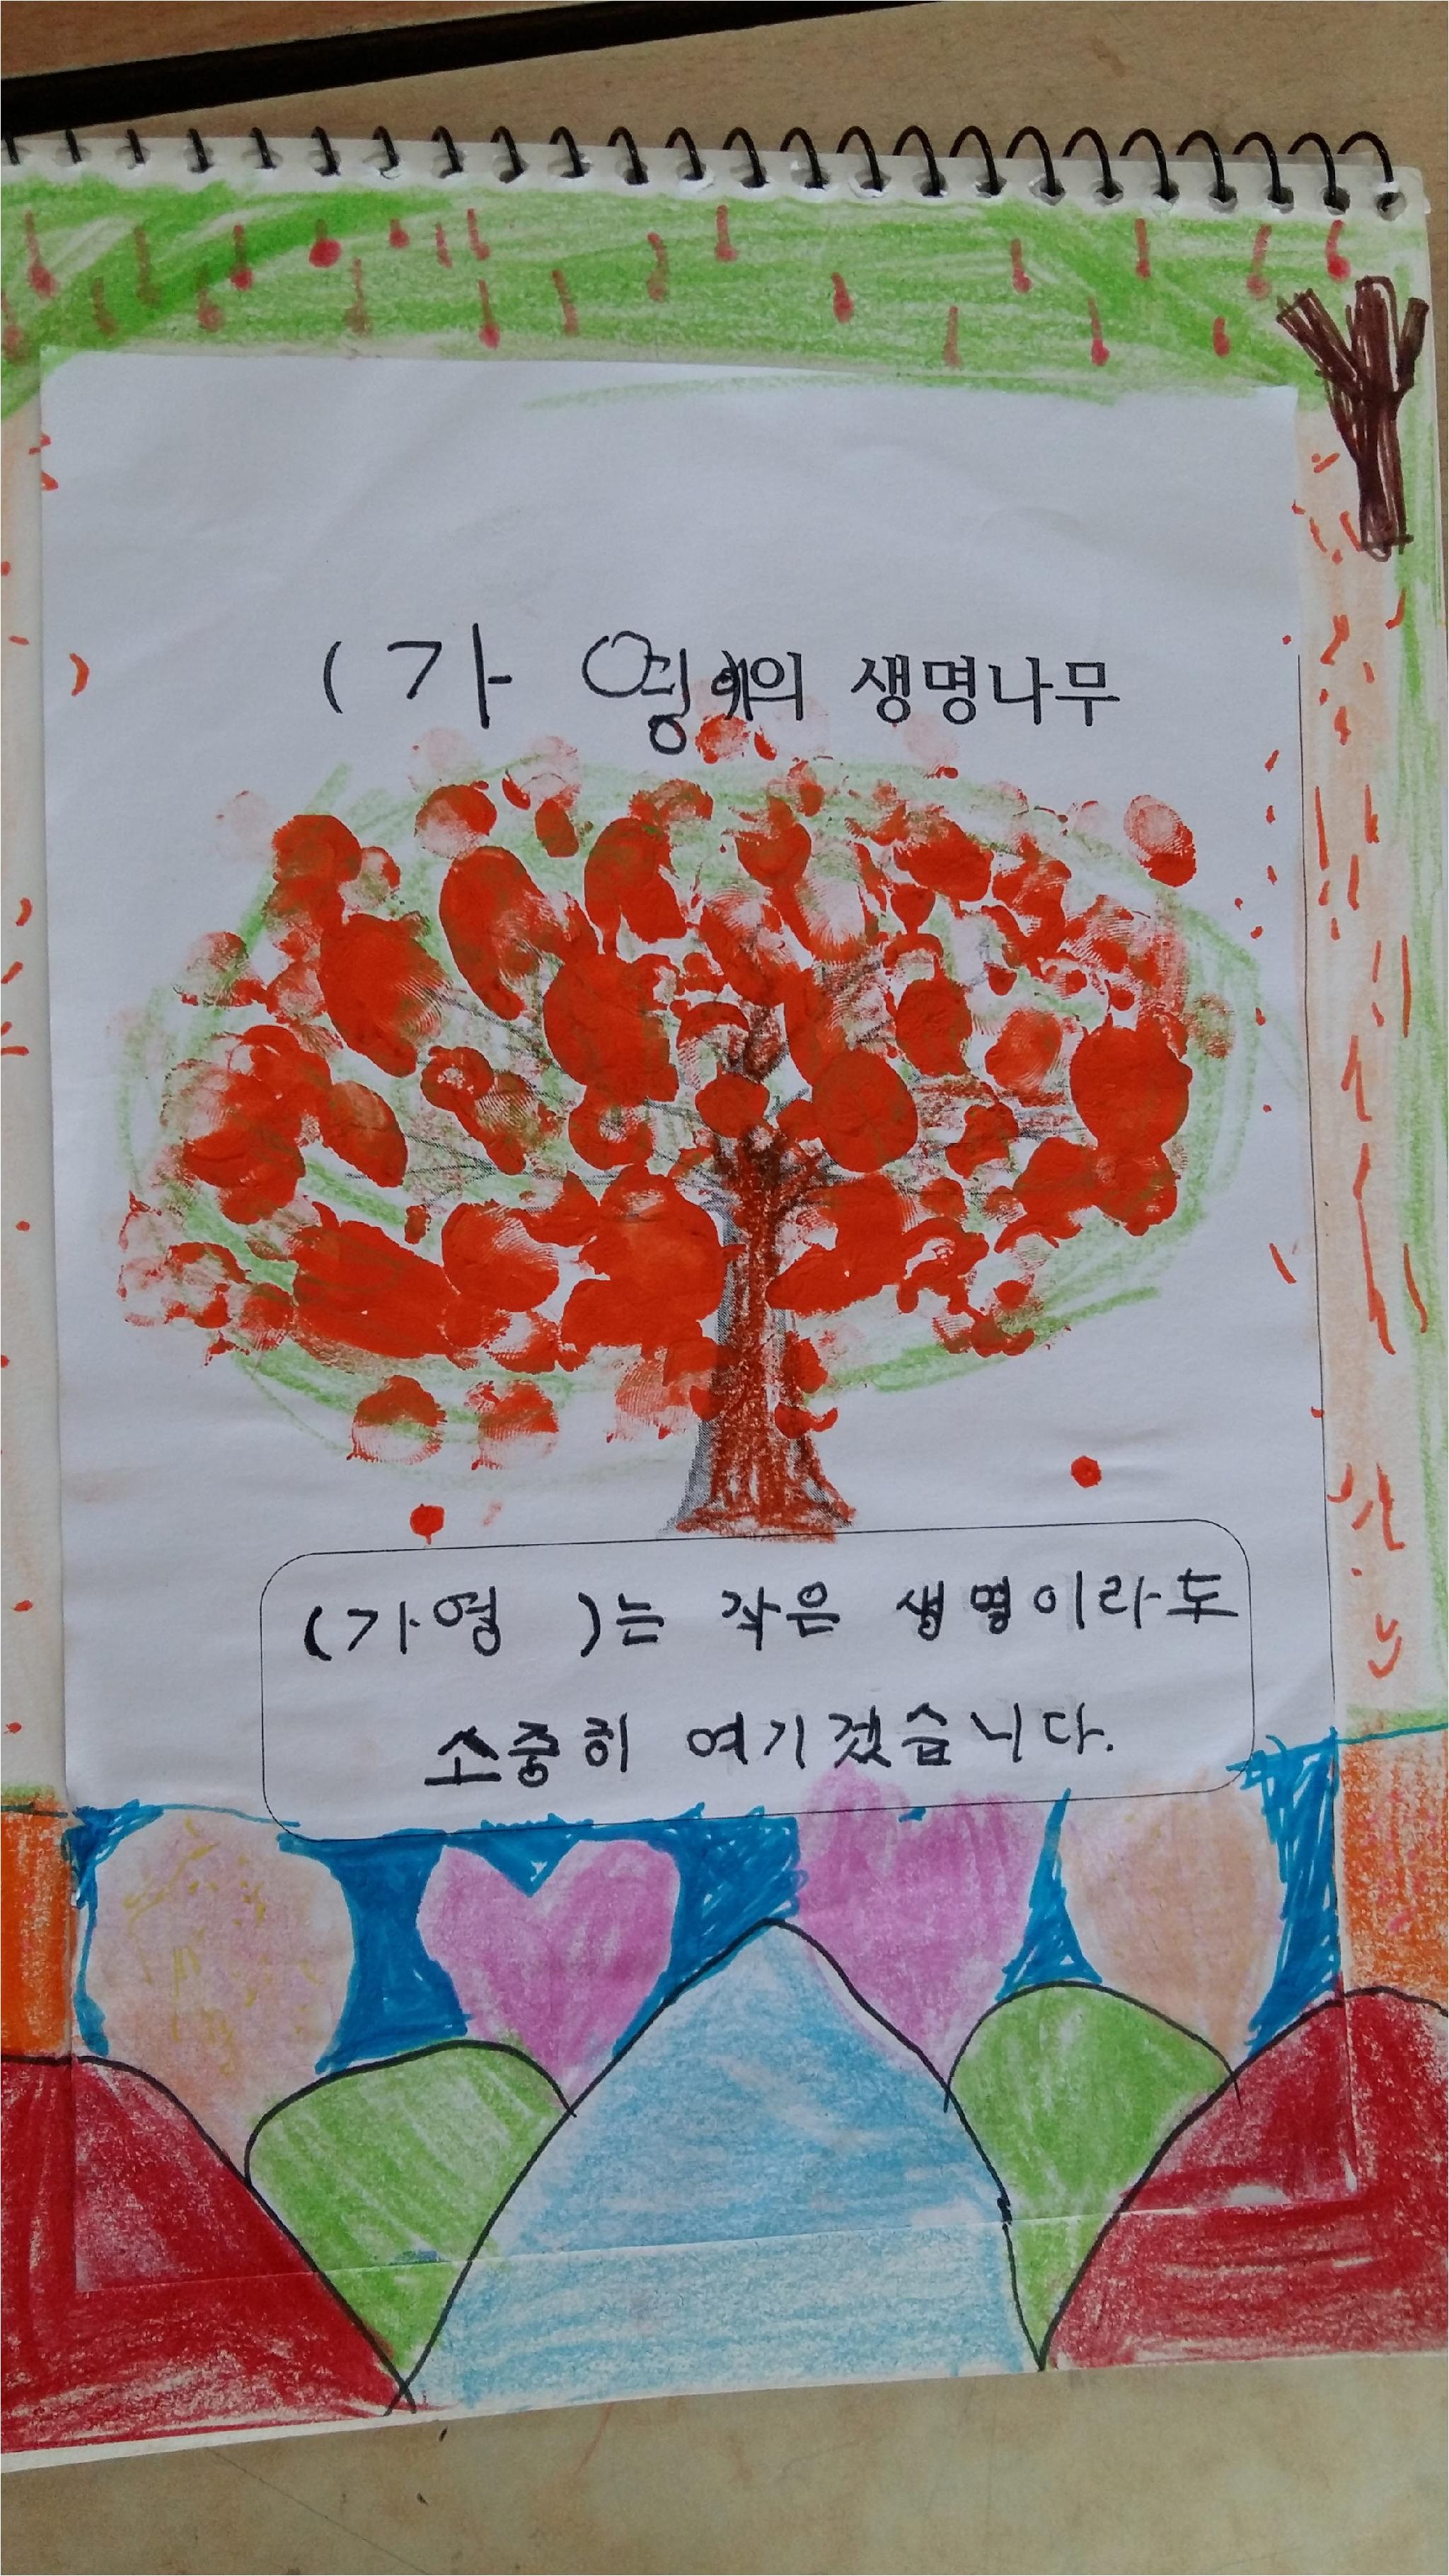 (가영이)의 생명나무
(가영 )는 작은 생명이라도
소중히 여기겠습니다.